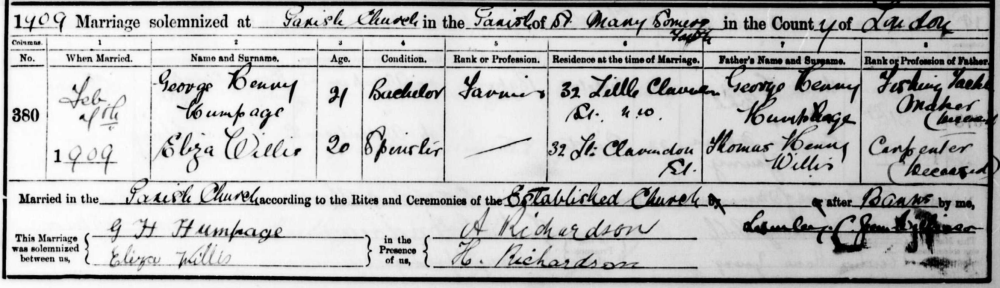 1909 Marriage solemnized at Parish Church in the Parish of St. Mary Somers Town in the County of London
Columns. 1 2 3 4 5 6 7 8
No. When Married. Name and Surname. Age. Condition. Rank or Profession. Residence at the time of Marriage. Father's Name and Surname. Rank or Profession of Father.
380 Feb 7th 1909
George Henry Humpage 21 Bachelor 32 Little Clarendon St. N.W. George Henry Humphage Fishing Tackle Maker (deceased)
Eliza Willis 20 Spinster — 32 Lt. Clarendon St. Thomas Henry Willis Carpenter (Deceased)
Married in the Parish Church according to the Rites and Ceremonies of the Established Church by or after Banns by me,
This Marriage was solemnized between us,
G H Humpage
Eliza Willis
in the Presence of us,
A Richardson
H. Richardson